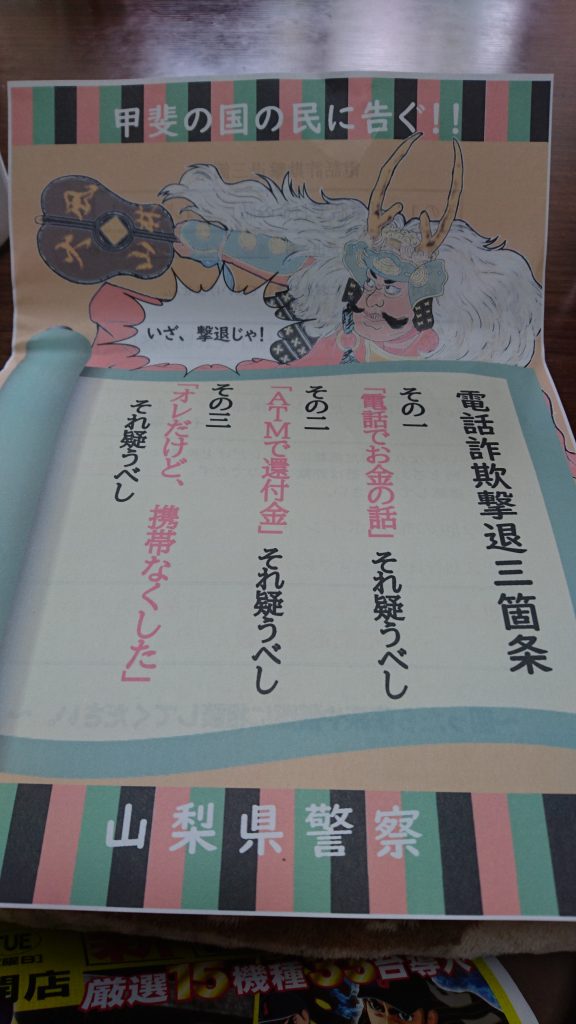 甲斐の国の民に告ぐ!!
風林
火山
いざ、撃退じゃ!
電話詐欺撃退三箇条
その一
「電話でお金の話」それ疑うべし
その二
「ATMで還付金」それ疑うべし
その三
「オレだけど、携帯なくした」
それ疑うべし
山梨県警察
TUE
曜日
開店
厳選15機種